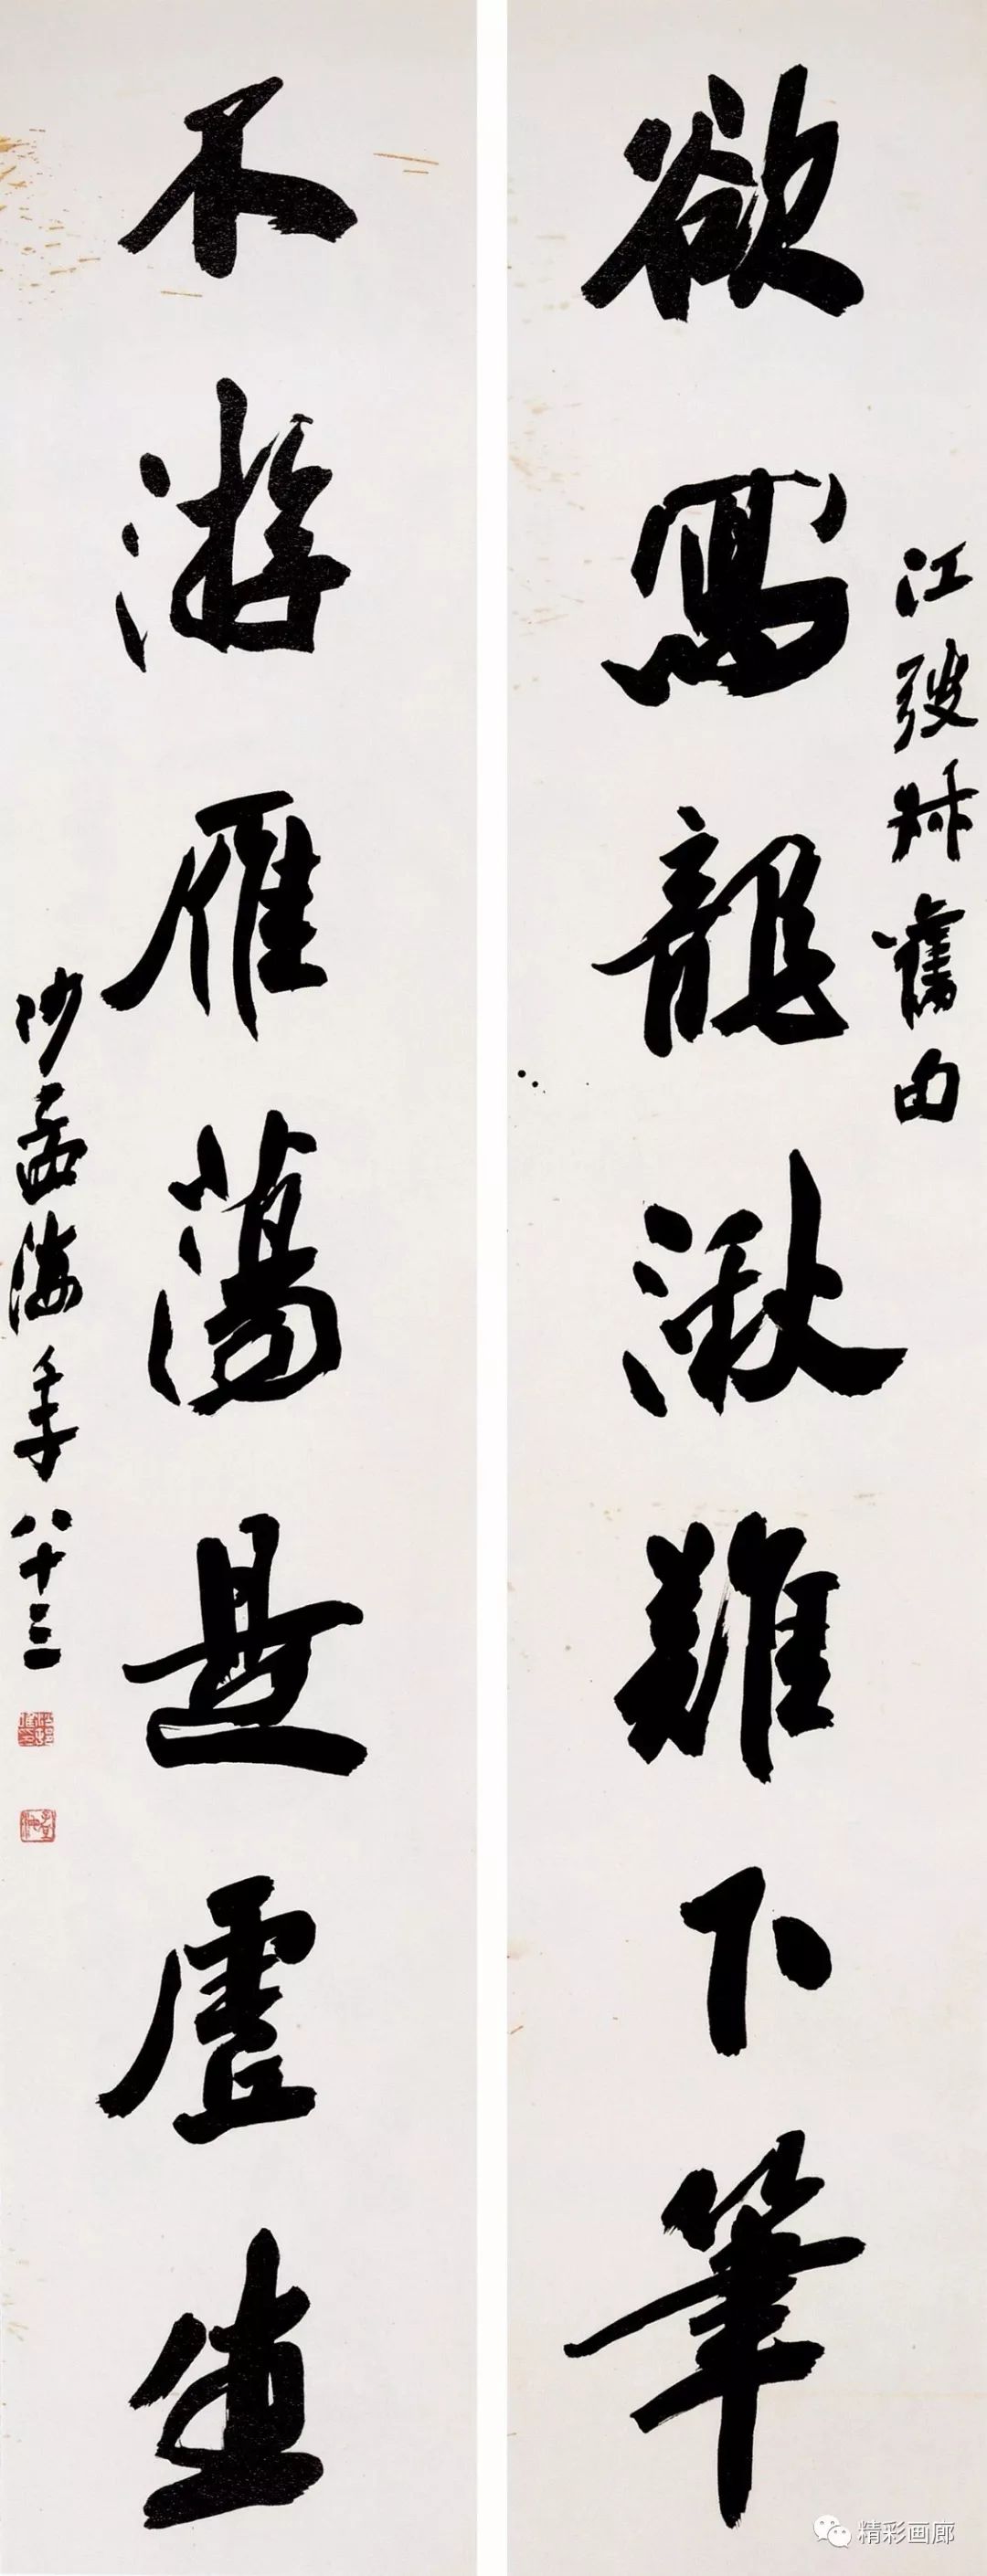 欲寫龍湫難下筆
江弢叔舊句
不游雁蕩是虛生
沙孟海年八十三
精彩画廊